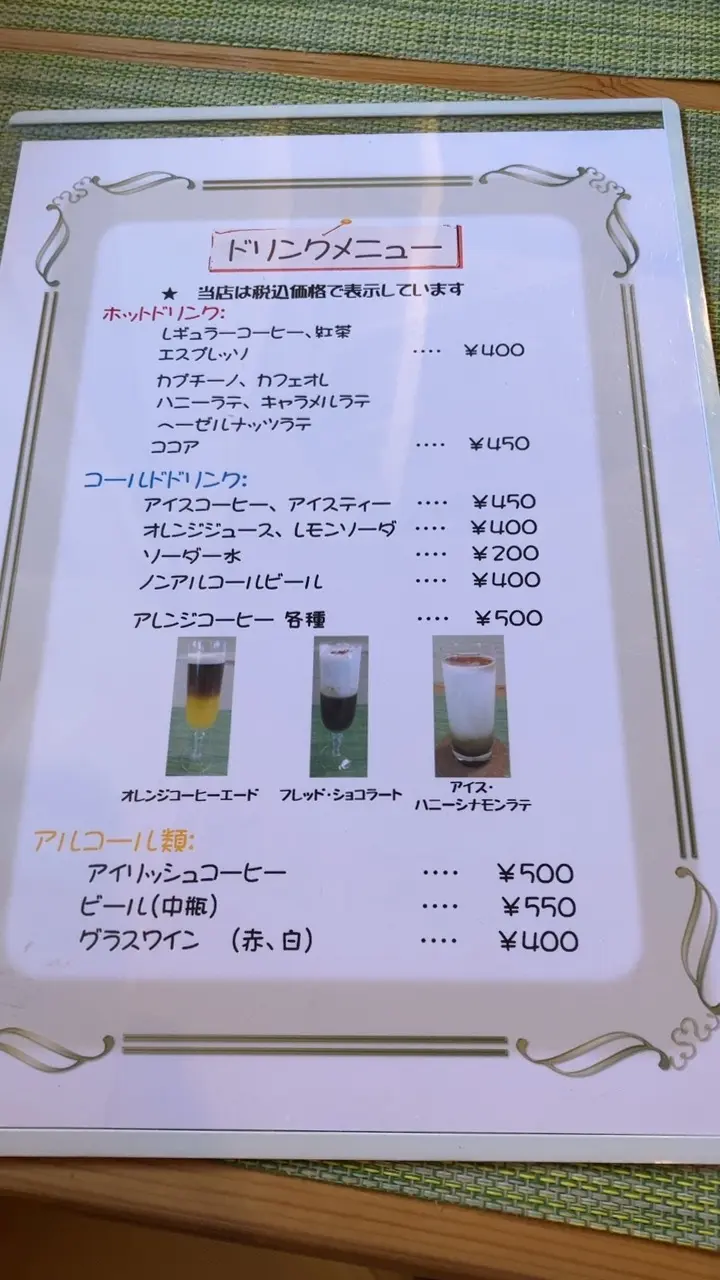 ドリンクメニュー
★ 当店は税込価格で表示しています
ホットドリンク:
レギュラーコーヒー、紅茶
エスプレッソ ････ ¥400
カプチーノ、カフェオレ
ハニーラテ、キャラメルラテ
ヘーゼルナッツラテ
ココア ････ ¥450
コールドドリンク:
アイスコーヒー、アイスティー ････ ¥450
オレンジジュース、レモンソーダ ････ ¥400
ソーダー水 ････ ¥200
ノンアルコールビール ････ ¥400
アレンジコーヒー 各種 ････ ¥500
オレンジコーヒーエード フレッド・ショコラート アイス・
ハニーシナモンラテ
アルコール類:
アイリッシュコーヒー ････ ¥500
ビール(中瓶) ････ ¥550
グラスワイン (赤、白) ････ ¥400